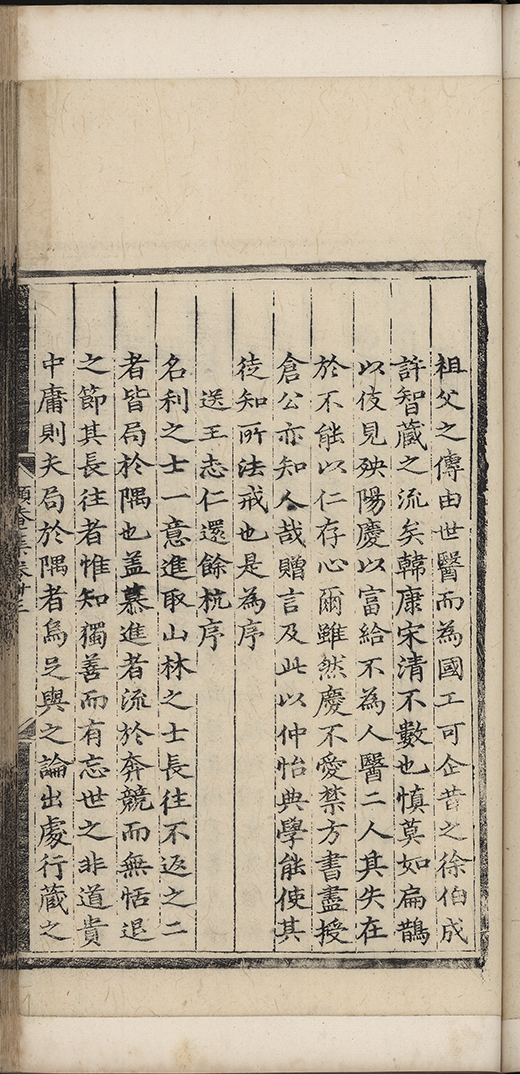 祖父之傳由世醫而為國工可企昔之徐伯成
許智蔵之流矣韓康宋清不數也慎莫如扁鵲
以伎見殃陽慶以富給不為人醫二人其失在
於不能以仁存心爾雖然慶不愛禁方書盡授
倉公亦知人哉贈言及此以仲怡典學能使其
徒知所法戒也是為序
送王志仁還餘杭序
名利之士一意進取山林之士長往不返之二
者皆局於隅也盖慕進者流於奔競而無恬退
之節其長往者惟知獨善而有忘世之非道貴
中庸則夫局於隅者烏足與之論出處行蔵之
頤菴集卷廿三